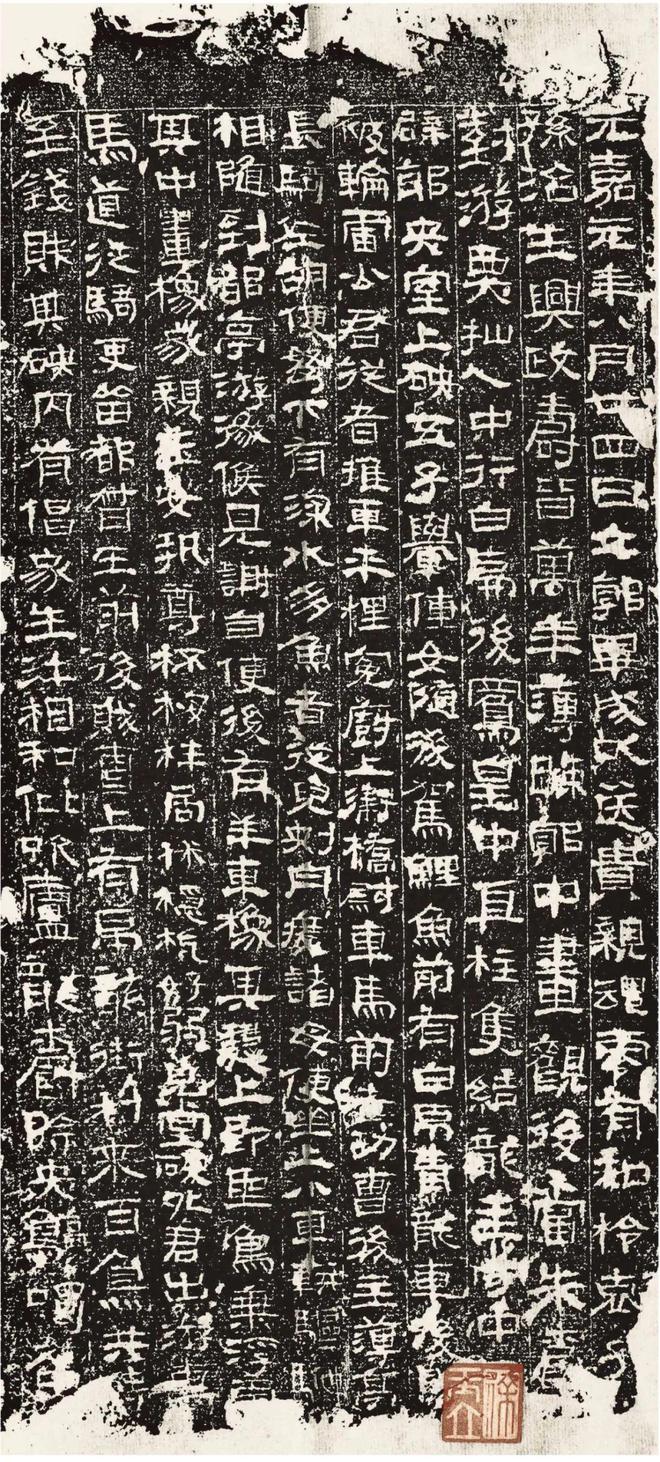 元嘉元年八月廿四日立郭畢成以送貴親魂零有知柃哀子
孫治生興政壽皆萬年薄踈郭中畫觀後當朱爵
對游㒸抴人中行白虎後鳳皇中直柱隻結龍主守中
辟邪央室上硤五子轝僮女隨後駕鯉魚前有白虎青龍車後
被輪雷公君從者推車乎梩冤廚上衛橋尉車馬前者功曹後主簿亭
長騎佐胡使弩下有深水多魚者從兒刺舟渡諸母使坐上小車軿驅馳
相隨到都亭游徼候見謝自便後有羊車橡其槥上即聖鳥乘浮雲
其中畫橡家親玉女執尊杯桉柈局㧖穩杭好弱貌堂硤外君出游車
馬道從騎吏留都督在前後賊曹上有虎龍銜利來百鳥共侍
至錢財其硤內有倡家生汙相和仳吹廬龍爵除央鶴噣魚